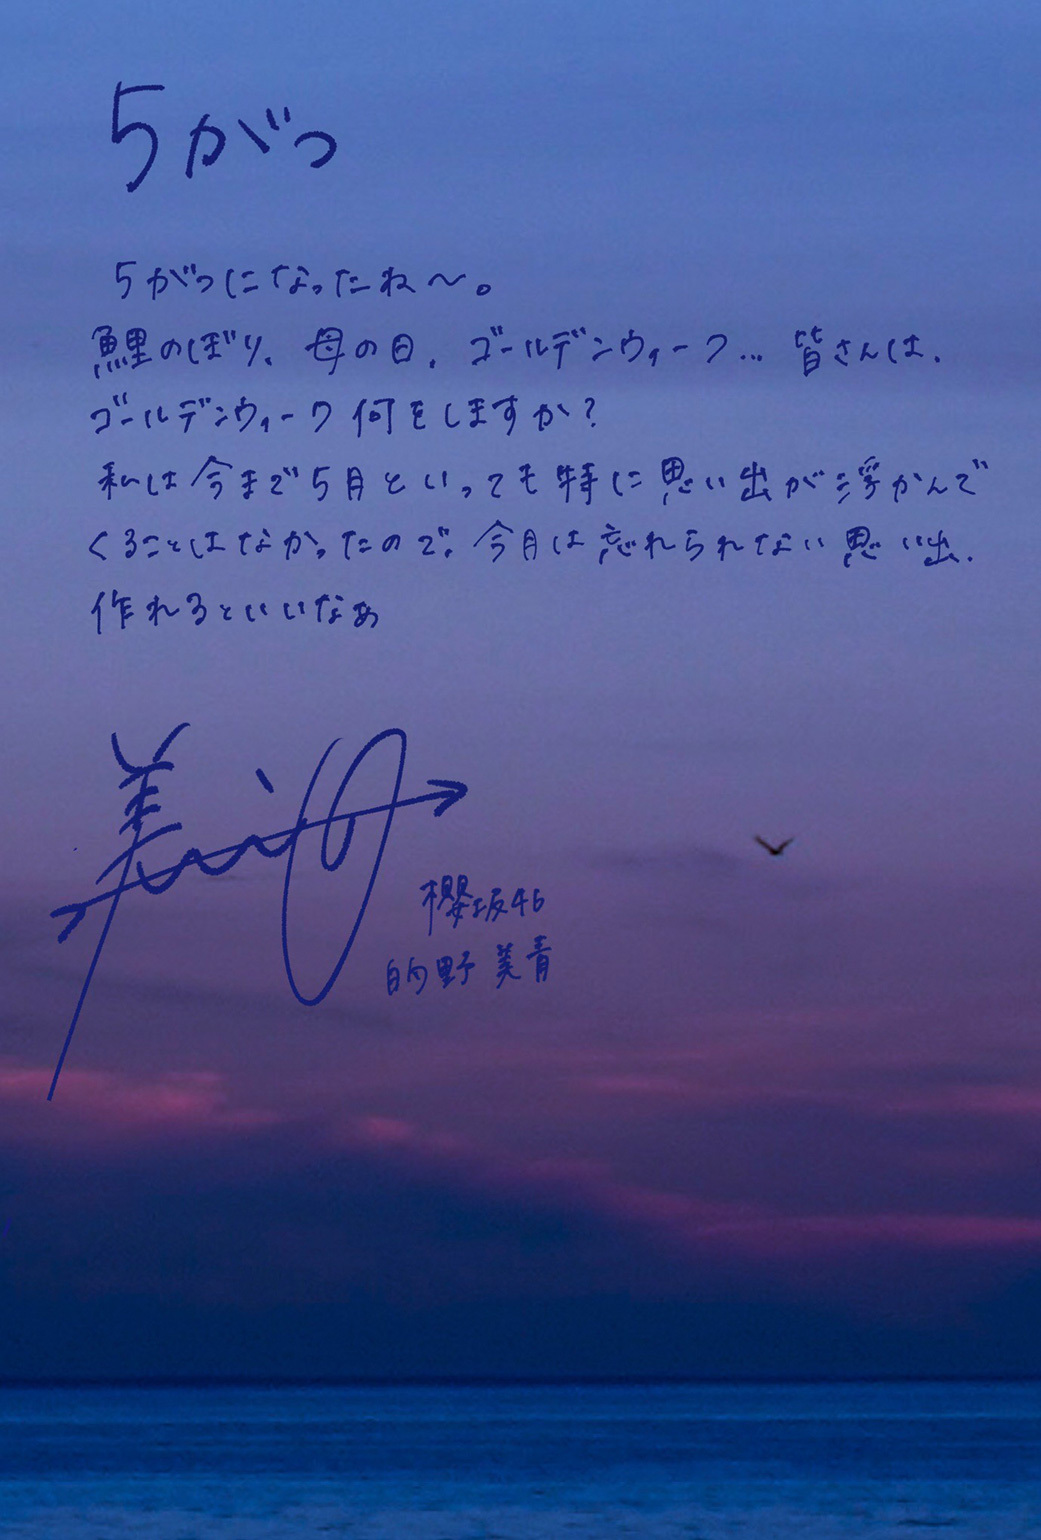 5がつ
5がつになったね〜。
鯉のぼり、母の日、ゴールデンウィーク… 皆さんは、
ゴールデンウィーク何をしますか?
私は今まで5月といっても特に思い出が浮かんで
くることはなかったので、今月は忘れられない思い出、
作れるといいなぁ
美青
櫻坂46
的野 美青